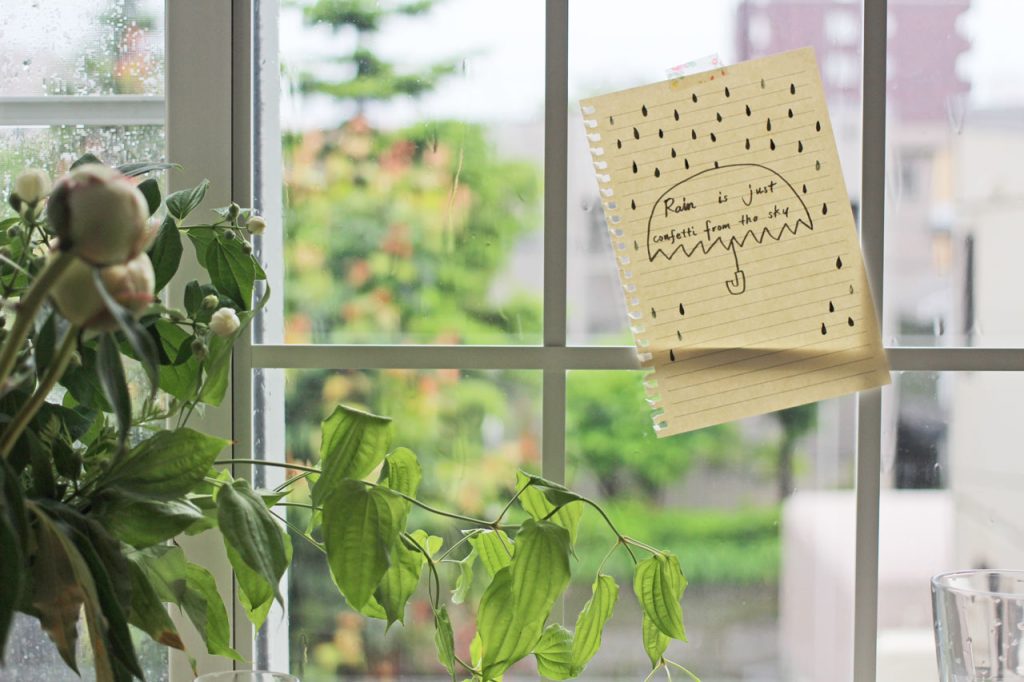 Rain is just
confetti from the sky